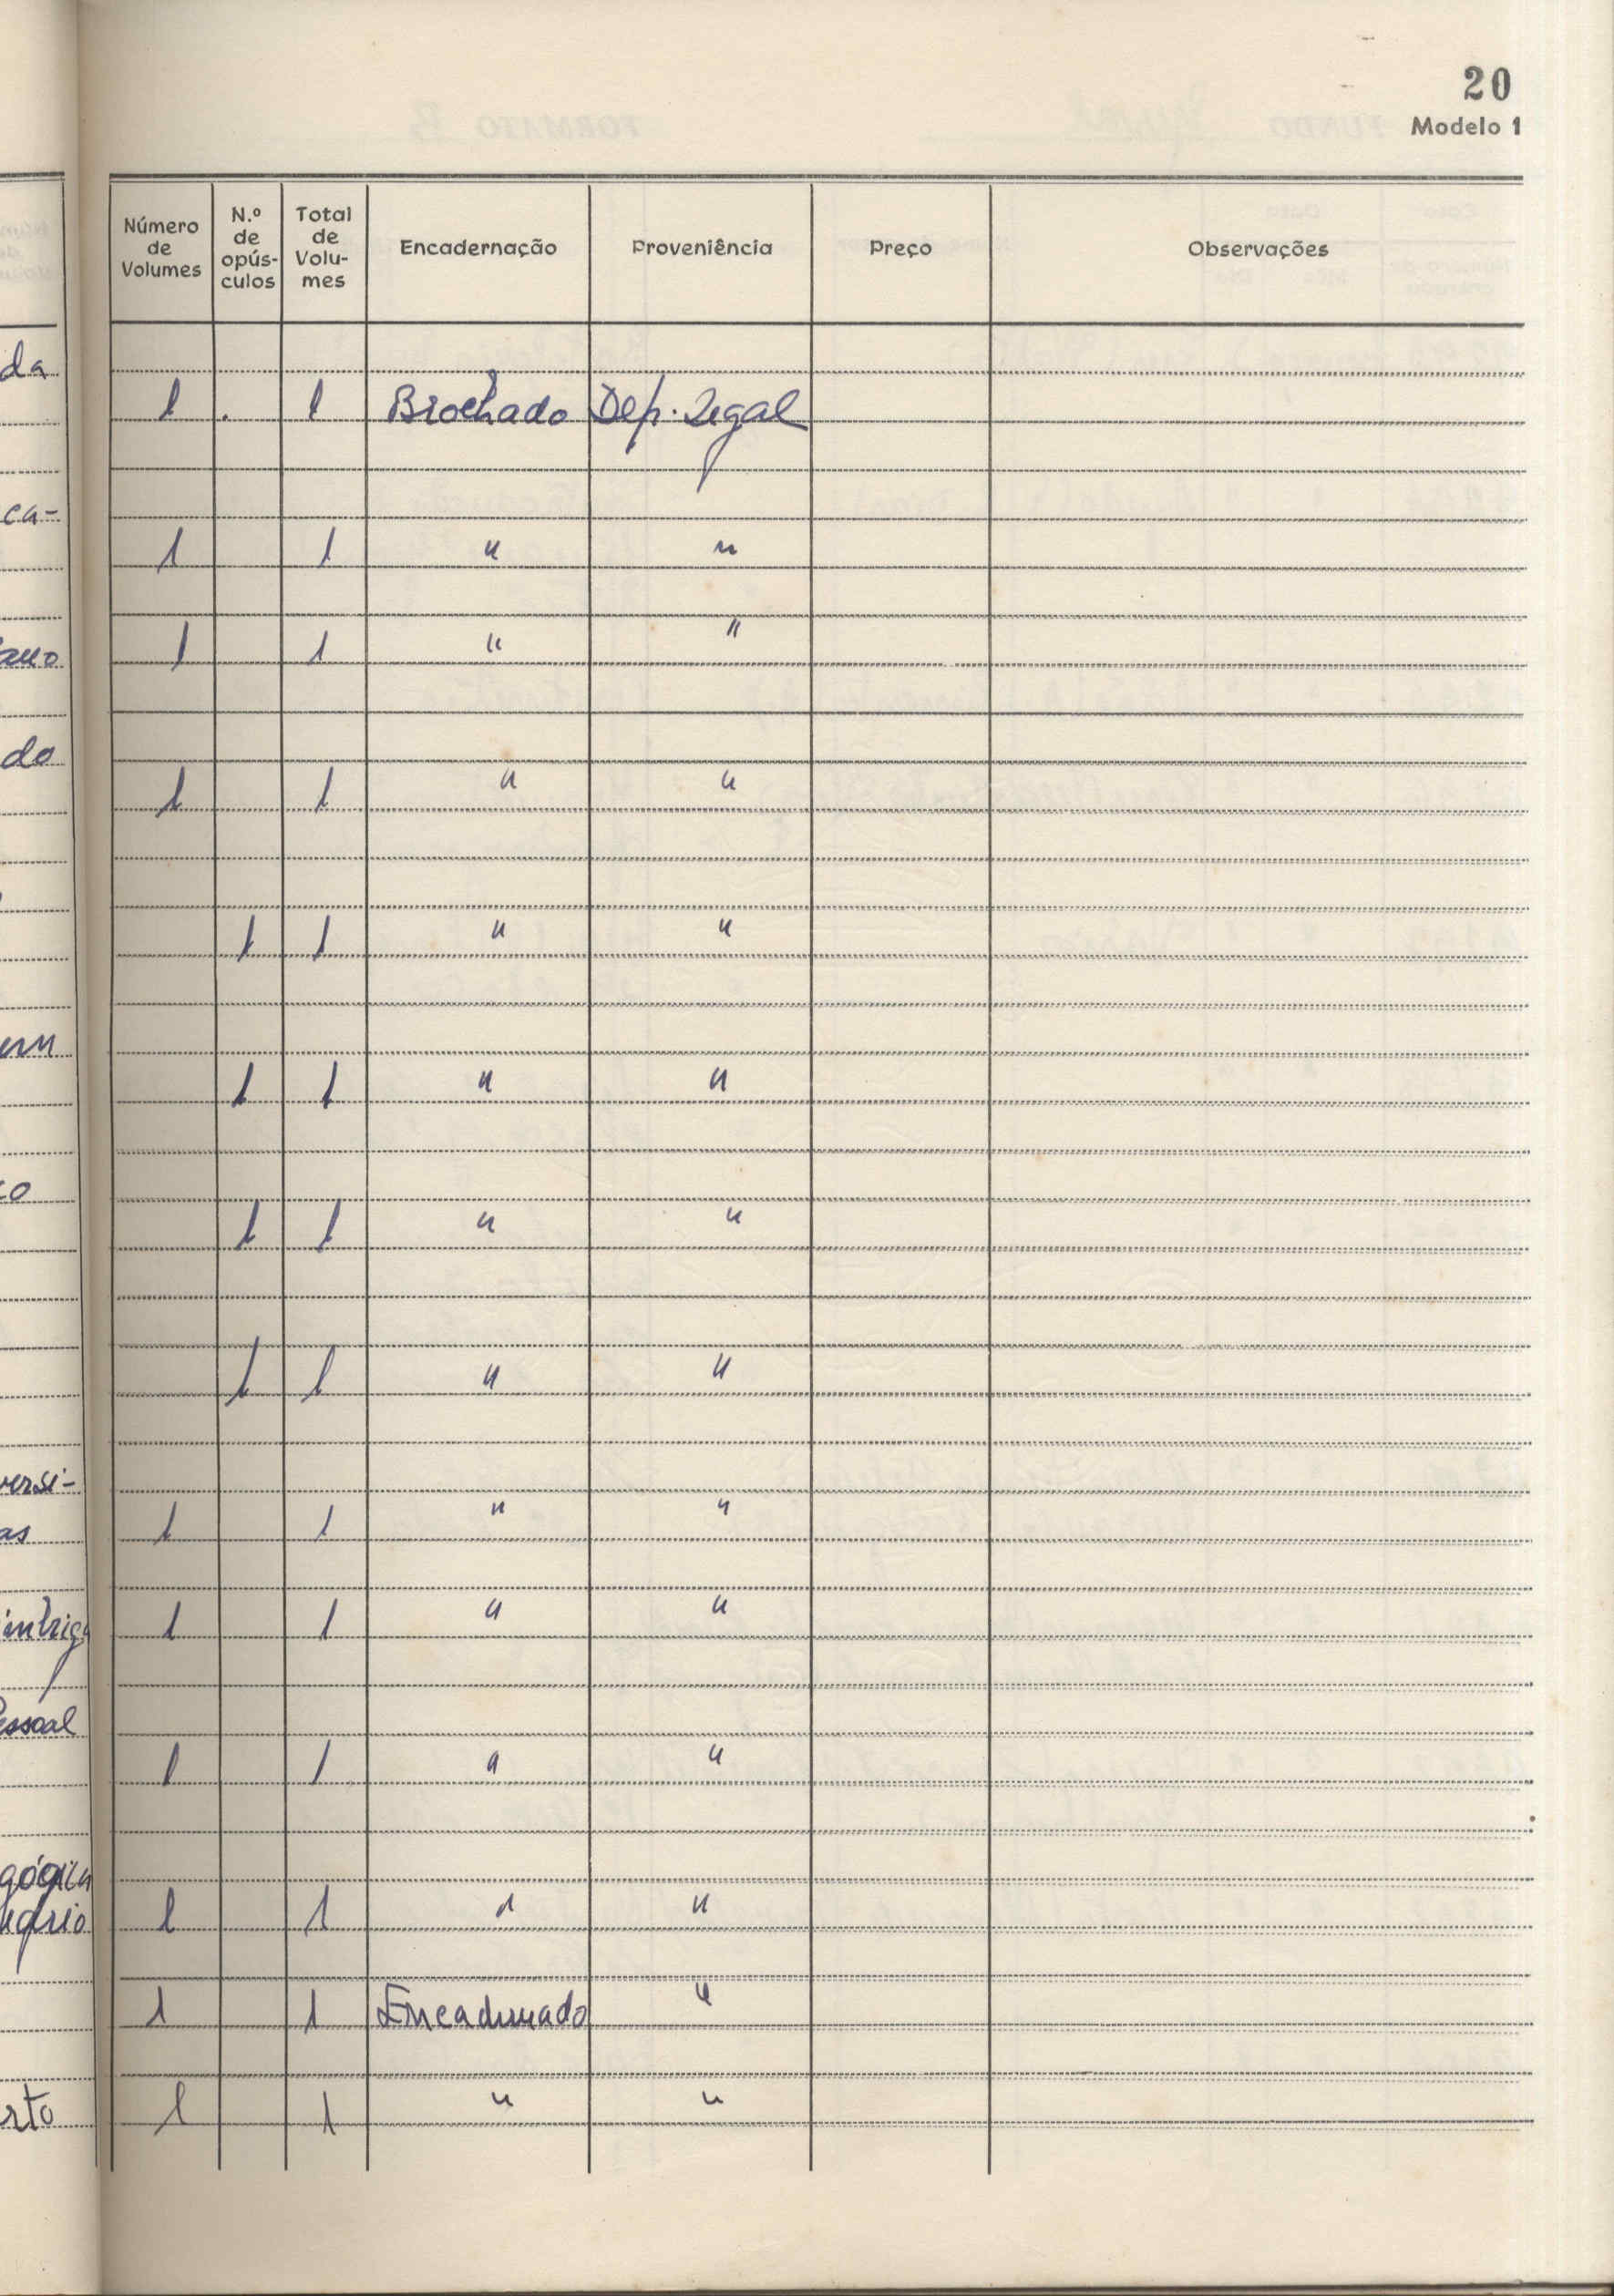 20
Modelo 1
Número de Volumes | N.º de opús-culos | Total de Volu-mes | Encadernação | Proveniência | Preço | Observações
da
1 . 1 Brochado Dep. Legal
ca-
1 1 " "
ano
1 1 " "
do
1 1 " "
1 1 " "
em
1 1 " "
co
1 1 " "
1 1 " "
versi-
as 1 1 " "
intriga 1 1 " "
Pessoal
1 1 " "
gógica
1 1 " "
1 1 Encadernado "
rto 1 1 " "